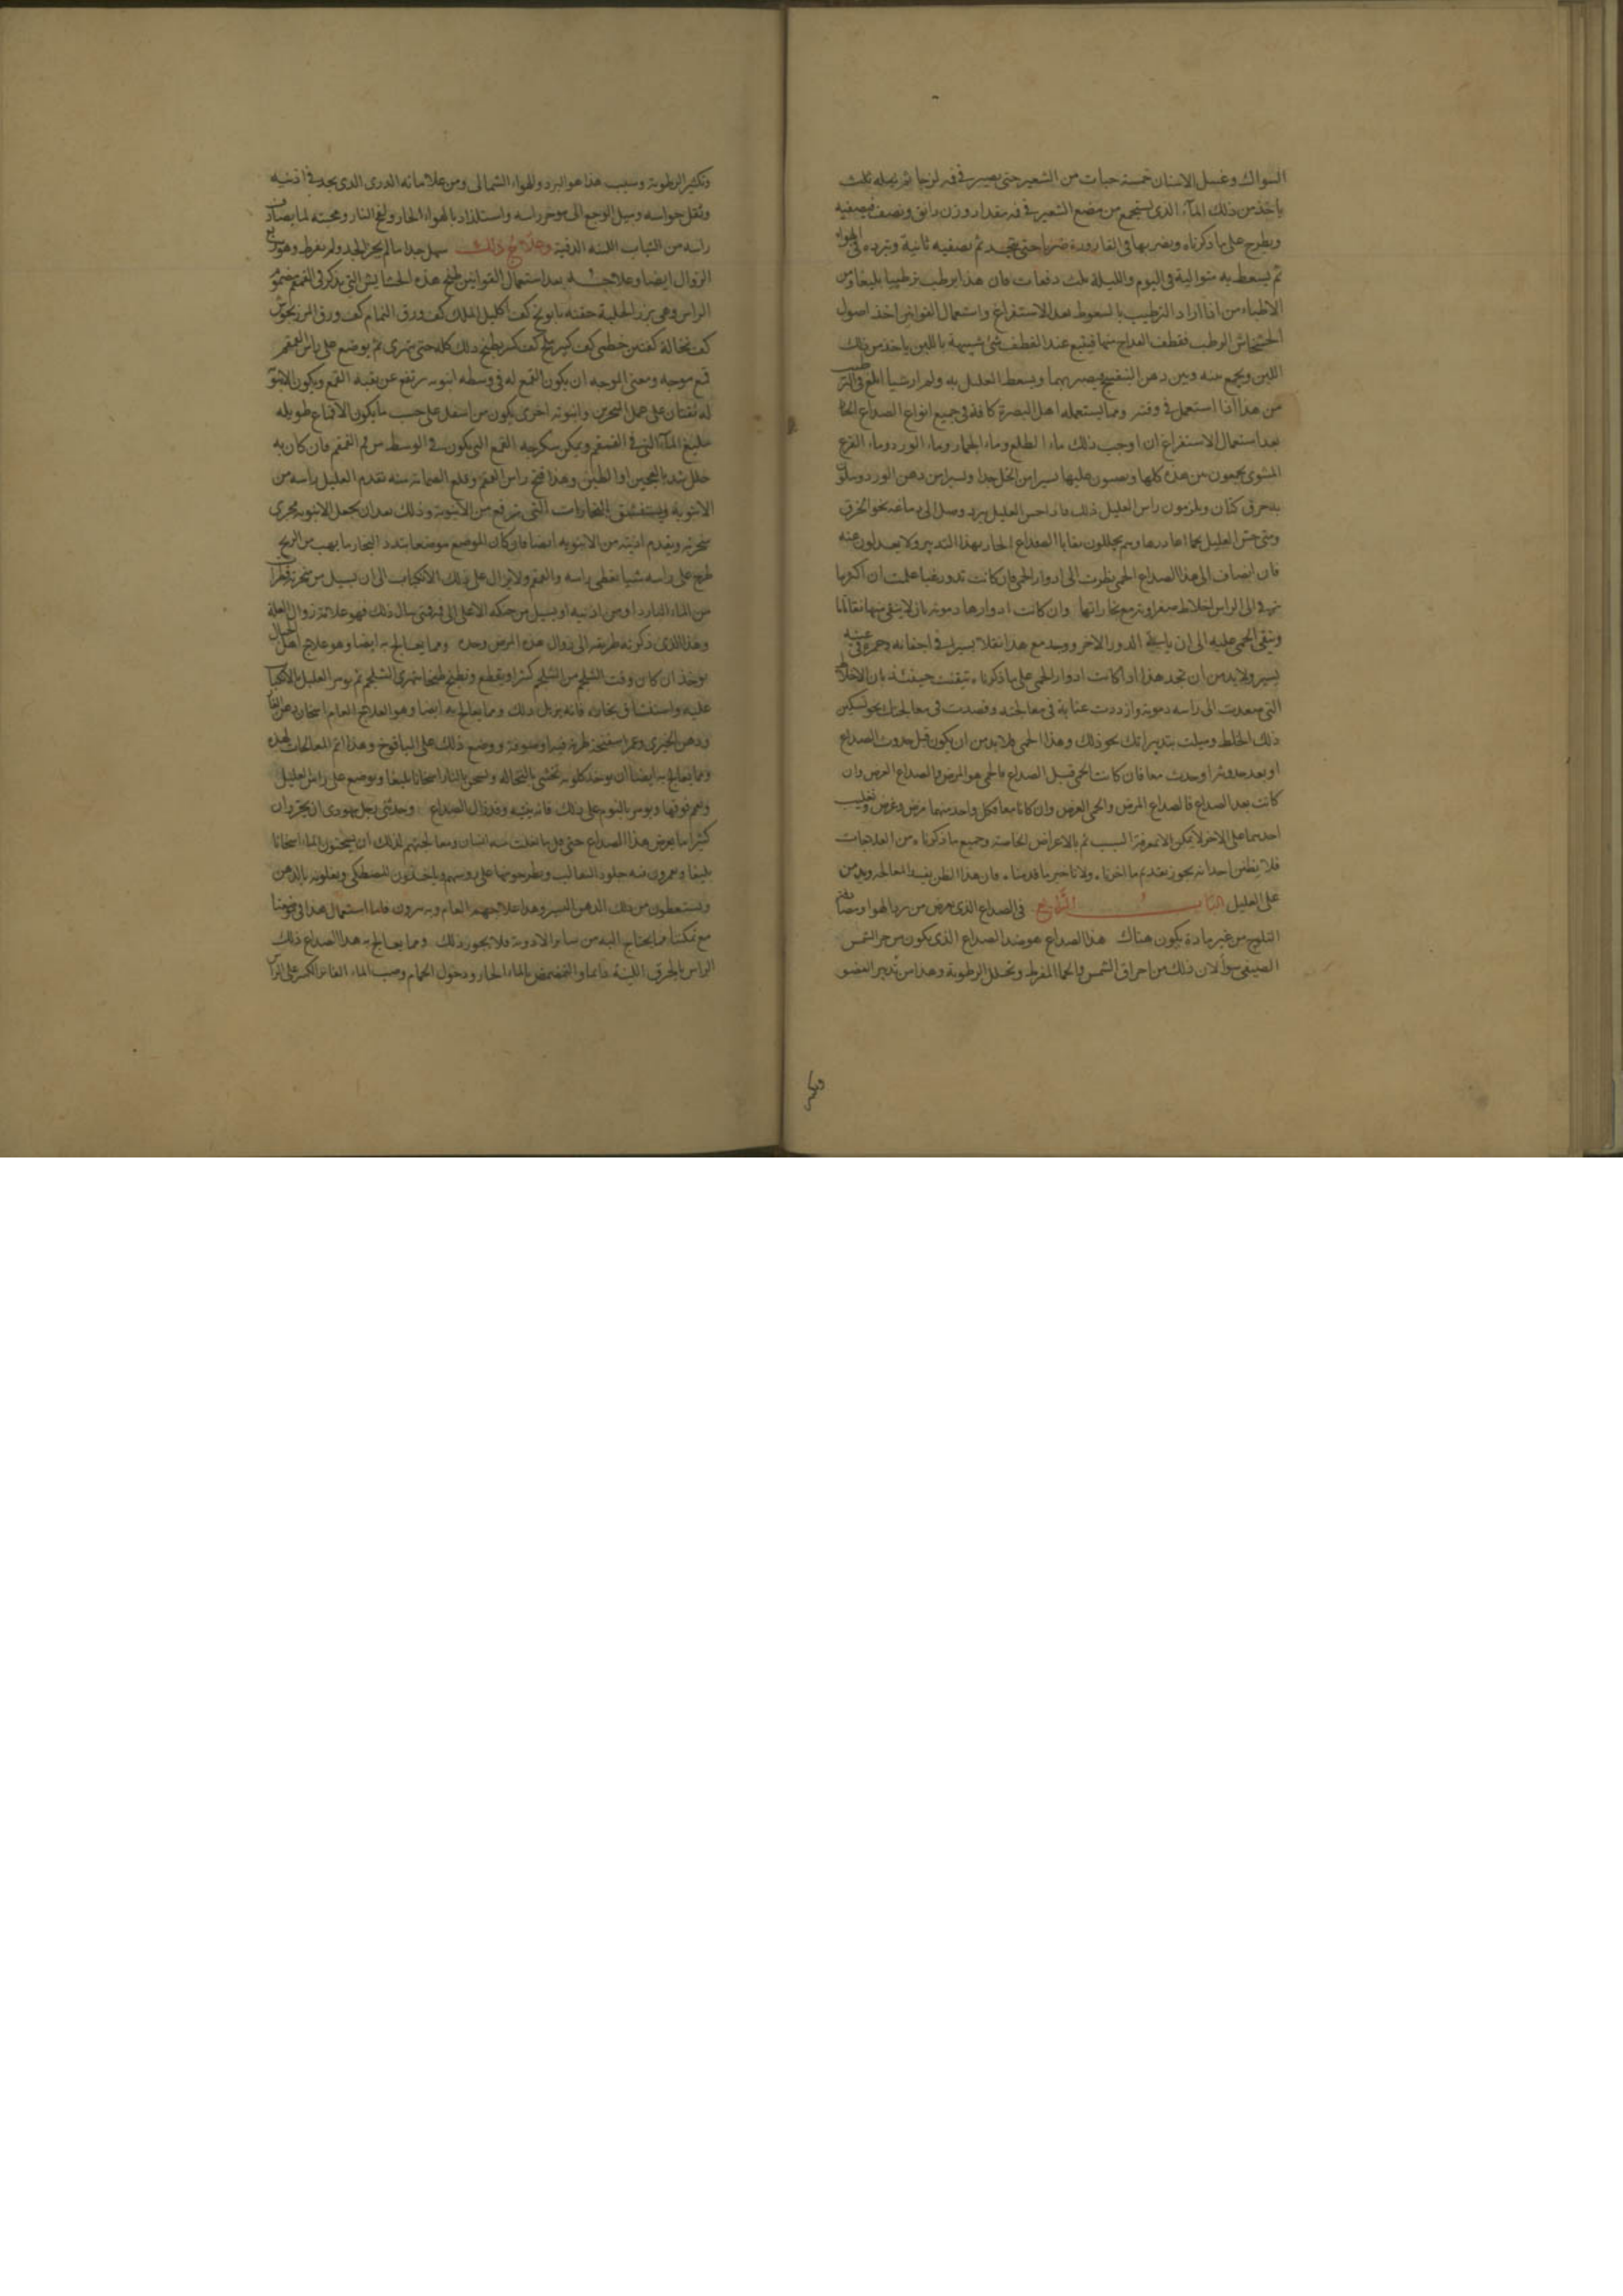 السواك وغسل الاسنان خمسة حبات من الشعير حتى يصير في فيه لزجا ثم يمله ثلث
ياخذ من ذلك الماء الذي يستجمع من مضغ الشعير في فيه مقدار وزن دانق ونصف فيصفيه
ويطرح على ما ذكرناه ويضربها في القارورة ضربا حتى يتحد ثم يصفيه ثانية ويبرده في الهواء
ثم يسعط به متوالية في اليوم والليلة ثلث دفعات فان هذا يرطب ترطيبا بليغا ومن
الاطباء من اذا اراد الترطيب بالسعوط بعد الاستفراغ واستعمال القوانين اخذ اصول
الخشخاش الرطب فقطف منها فينبع عند القطف شئ شبيهة باللبن ياخذ من ذلك
اللبن ويجمع بينه وبين دهن البنفسج ويضربهما ويسعط العليل به ولم ار شيا ابلغ في الترطيب
من هذا اذا استعمل في وقته ومما يستعمله اهل البصرة كافة في جميع انواع الصداع الحار
بعد استعمال الاستفراغ ان اوجب ذلك ماء الطلع وماء الجمار وماء الورد وماء القرع
المشوي يجمعون من هذه كلها ويصبون عليها يسيرا من الخل جدا ويسيرا من دهن الورد ويبلون
به خرق كتان ويلزمون راس العليل ذلك فاذا احس العليل ببرد وصل الى دماغه نحوا الخرق
ومتى حس العليل بحما اعادوها وهم يحللون بقايا الصداع الحار بهذا التدبير ولا يعدلون عنه
فان انضاف الى هذا الصداع الحمى نظرت الى ادوار الحمى فان كانت تدور غبا علمت ان اكثرها
يرقى الى الراس اخلاط صفراوية مع بخاراتها وان كانت ادوارها دموية بان لا ينقى منها نقا تاما
وتبقى الحمى عليه الى ان ياتي الدور الاخر ووجد مع هذا ثقلا يسيرا في اجفانه وحمرة في عينيه
يسير ولا بد من ان تجد هذا اذا كانت ادوار الحمى على ما ذكرناه تيقنت حينئذ بان الاخلاط
التي صعدت الى راسه دموية وازددت عناية في معالجته وقصدت في معالجتك نحو تسكين
ذلك الخلط وميلت بتدبيراتك نحو ذلك وهذا الحمى فلا بد من ان يكون قبل حدوث الصداع
او بعد حدوثه او حدث معا فان كانت الحمى قبل الصداع فالحمى هو المرض والصداع العرض وان
كانت بعد الصداع فالصداع المرض والحمى العرض وان كانا معا فكل واحد منهما مرض وعرض وتغليب
احدهما على الاخر لا يمكن الا بمعرفة السبب ثم بالاعراض الخاصة وجميع ما ذكرناه من العلاجات
فلا يظنن احد انه يجوز تقديم ما اخرناه ولا تاخير ما قدمناه فان هذا الظن يفسد المعالجة
على العليل الباب الرابع في الصداع الذي يعرض من برد الهوا
الثلوج من غير مادة يكون هناك هذا الصداع هو ضد الصداع الذي يكون من حر الشمس
الصيفي سوا لان ذلك من احراق الشمس والحما المفرط وتحلل الرطوبة وهذا من تدبير العضو
وتكثير الرطوبة وسبب هذا هو البرد والهواء الشمالي ومن علاماته الدوي الذي يجد في اذنيه
وثقل حواسه وميل الوجع الى موخر راسه واستلذاذ بالهواء الحار ولفح النار ومحبته لما يصادف
راسه من الثياب اللينة الدفية وعلاج ذلك سهل جدا ما لم يجز الحد ولم يفرط وهو سريع
الزوال ايضا وعلاجه بعد استعمال القوانين طبخ هذه الحشايش التي نذكر في القمقم مضموم
الراس وهي بزر الحلبة حفنة بابونج كف اكليل الملك كف ورق النمام كف ورق المرزنجوش
كف نخالة كفين خطمى كف كبير ملح كف كبير يطبخ ذلك كله حتى يتهرى ثم يوضع على راس القمقم
قمع موجه ومعنى الموجه ان يكون القمع له في وسطه انبوبة يرتفع عن بقية القمع ويكون الانبوبة
له ثقبتان على حمل النحرين وانبوبة اخرى يكون من اسفل على حسب ما يكون الاقماع طويلة
مبلغ الماء الذي في القمقم ويمكن سكرجة القمع التي يكون في الوسط من فم القمقم فان كان به
خلل شد بالعجين او الطين وهذا فتح راس القمقم وقلع الصمامة منه تقدم العليل راسه من
الانبوبة ويستنشق البخارات التي ترفع من الانبوبة وذلك بعد ان يجعل الانبوبة مجرى
منخريه ويقدم اذنيه من الانبوبة ايضا فان كان الموضع موضعا يتدد البخار ما يهب من الريح
طرح على راسه شيا يغطي راسه والقمقم ولا يزال على ذلك الانكباب الى ان يسيل من منخريه قطرات
من الماء البارد او من اذنيه او يسيل من حنكه الاعلى الى فيه فمتى سال ذلك فهو علامة زوال العلة
وهذا الذي ذكرته طريقه الى زوال هذه المرض وحده ومما يعالج به ايضا وهو علاج اهل الجبال
يوخذ ان كان وقت الشلجم من الشلجم كثيرا ويقطع ويطبخ طبخا يتهرى الشلجم ثم يومر العليل بالانكباب
عليه واستنشاق بخاره فانه يزيل ذلك ومما يعالج به ايضا وهو العلاج العام اسخان دهن الغار
ودهن الخيري وغمر اسفنجة طرية فيه او صوفة ووضع ذلك على اليافوخ وهذا اتم المعالجات لهذه
ومما يعالج به ايضا ان يوخذ كلوته تحشى بالنخالة وتسخن بالنار اسخانا بليغا ويوضع على راس العليل
ويعمم فوقها ويومر بالنوم على ذلك فانه ينتبه وقد زال الصداع وحدثني رجل يهودي ان
كثيرا ما يعرض هذا الصداع حتى قل ما يفلت منه انسان ومعالجتهم لذلك ان يسخنون الماء اسخانا
بليغا ويغمرون فيه جلود الثعالب ويطرحونها على روسهم وياخذون المصطكى ويغلونه بالدهن
ويستعطون من ذلك الدهن اليسير وهذا علاجهم العام وبه يبرون فاما استعمال هذا في موضعنا
مع تمكننا مما يحتاج اليه من سائر الادوية فلا يجوز ذلك ومما يعالج به هذا الصداع دلك
الراس بالخرق اللينة دائما والتمضمض بالماء الحار ودخول الحمام وصب الماء الفاتر الكثير على الراس